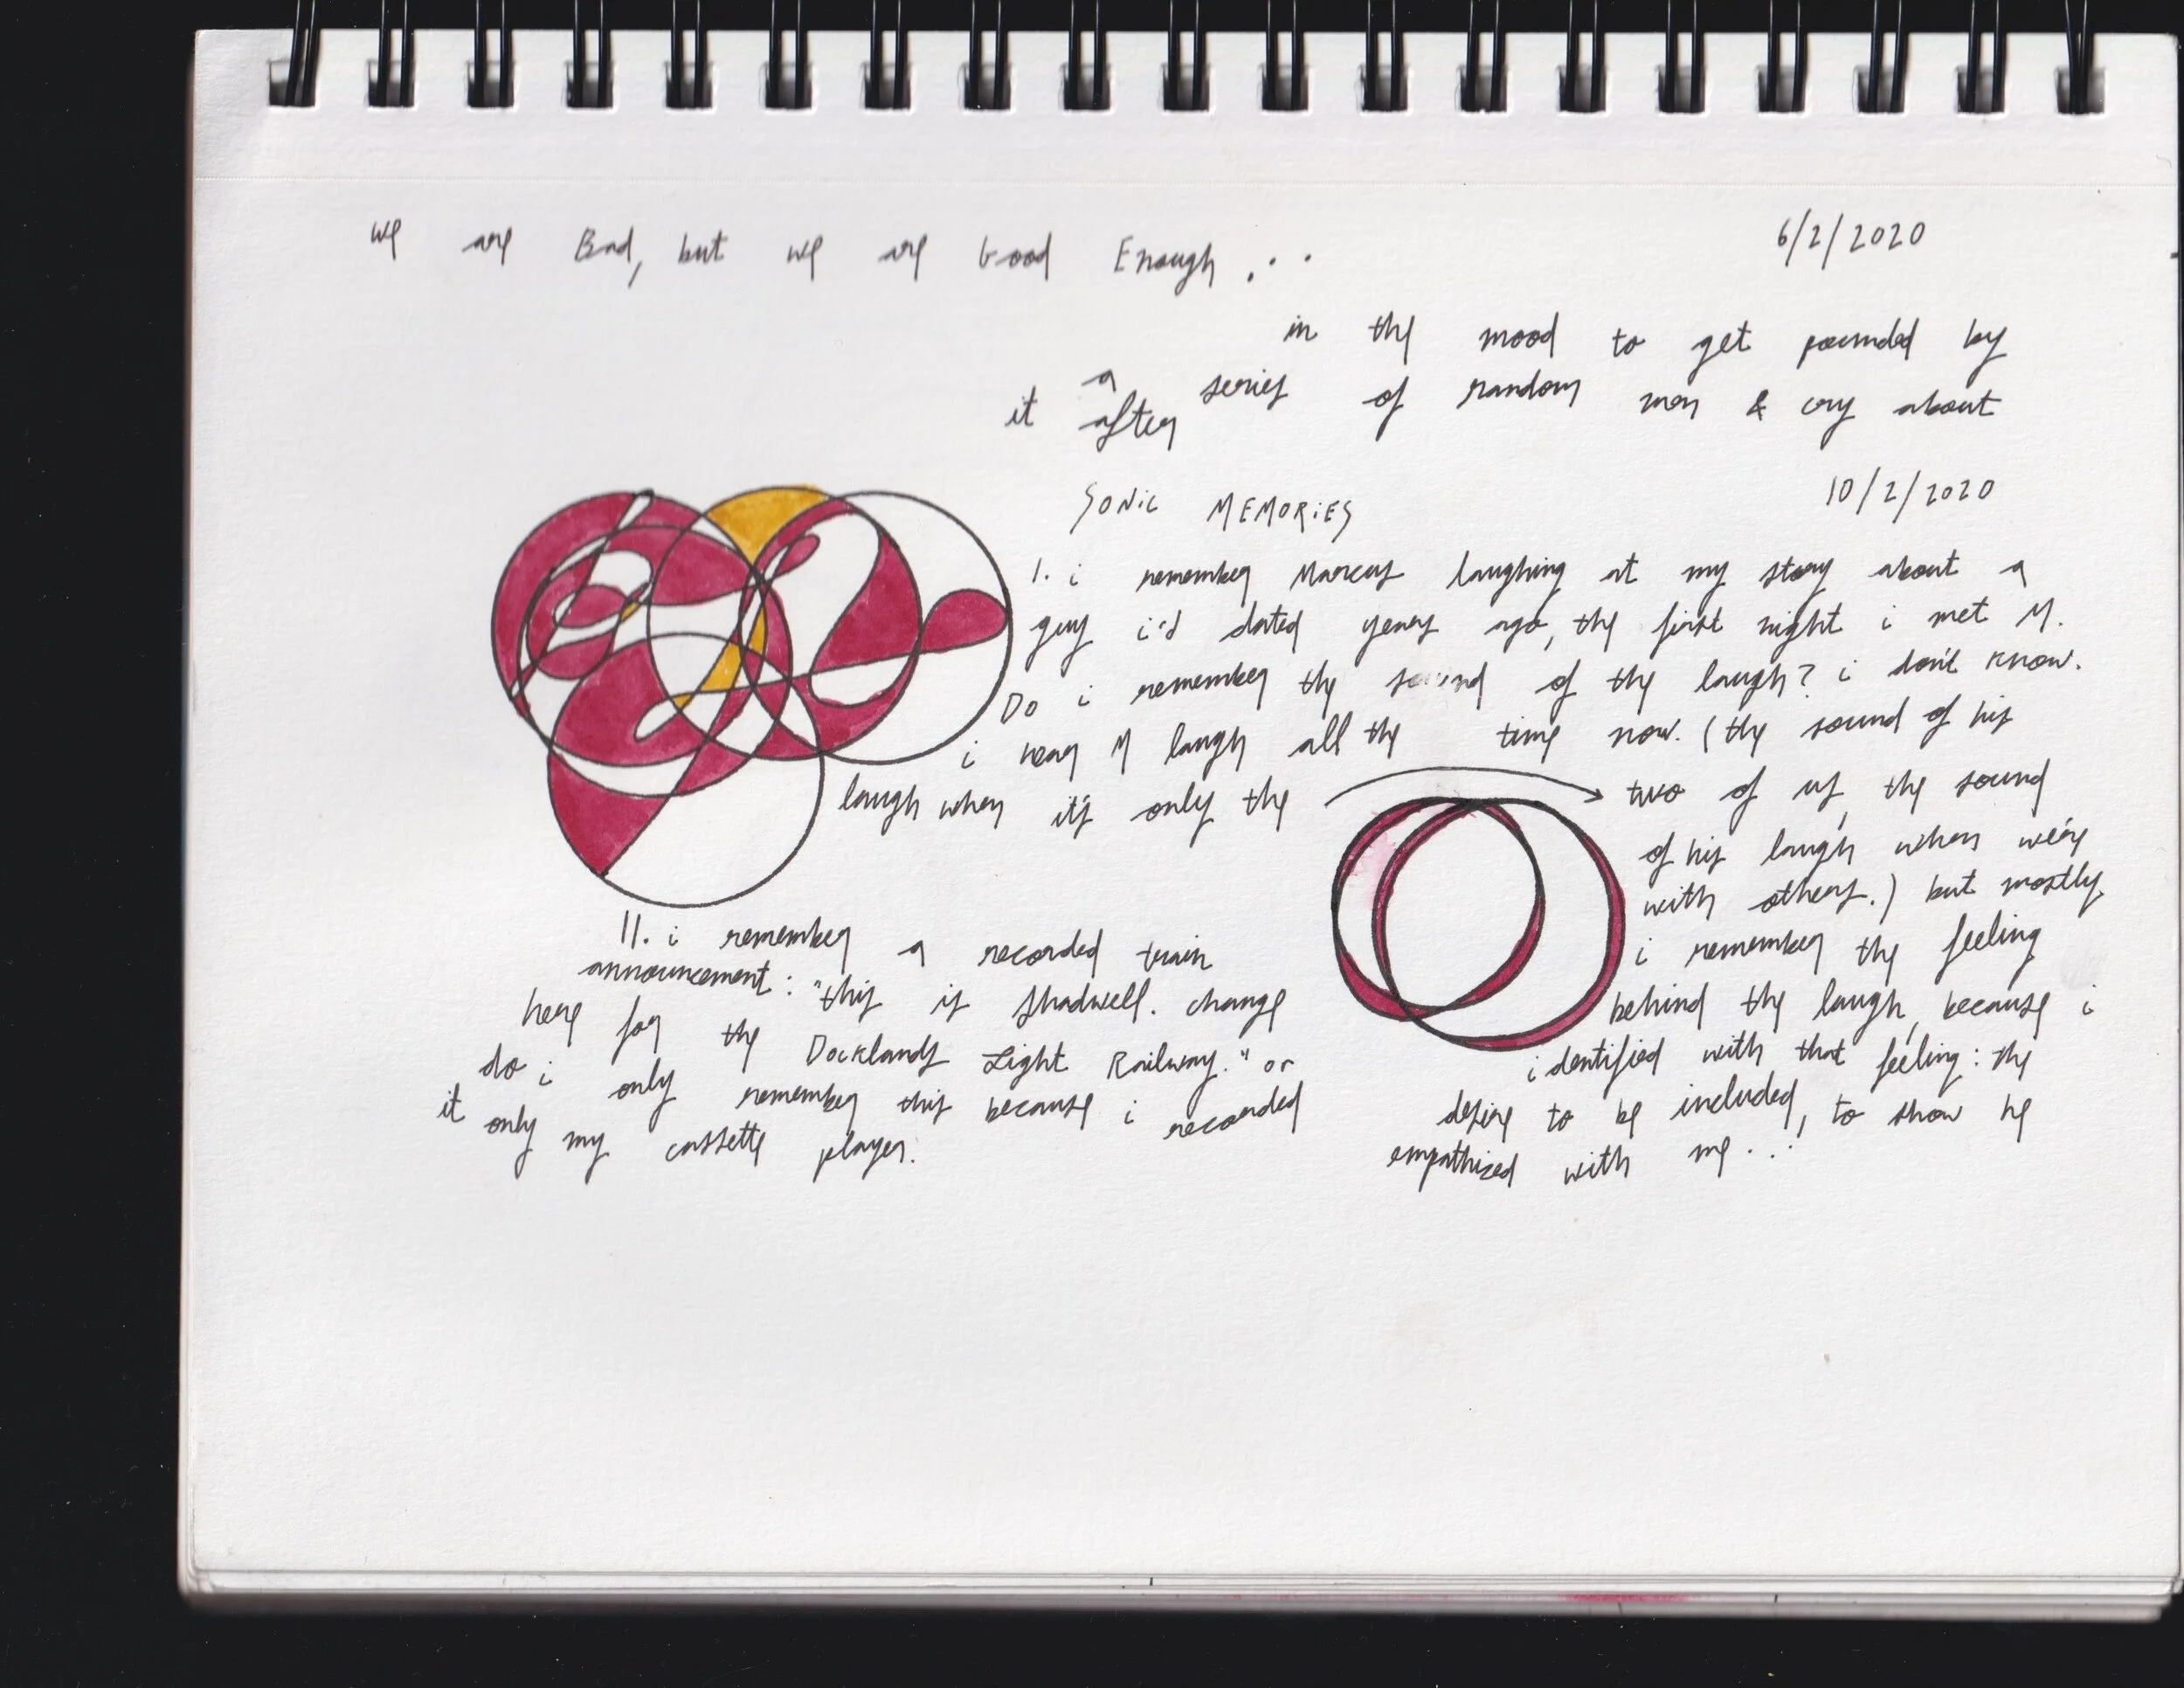 we are Bad, but we are Good Enough...
6/2/2020
in the mood to get pounded by
a series of random men & cry about
it after
SONiC MEMORiES
10/2/2020
I. i remember Marcus laughing at my story about a
guy i'd dated years ago, the first night i met M.
Do i remember the sound of the laugh? i don't know.
i hear M laugh all the time now. (the sound of his
laugh when it's only the
two of us, the sound
of his laugh when we're
with others.) but mostly
i remember the feeling
behind the laugh, because i
identified with that feeling: the
desire to be included, to show he
empathised with me...
II. i remember a recorded train
announcement: "this is Shadwell. change
here for the Docklands Light Railway." or
do i only remember this because i recorded
it only my cassette player.